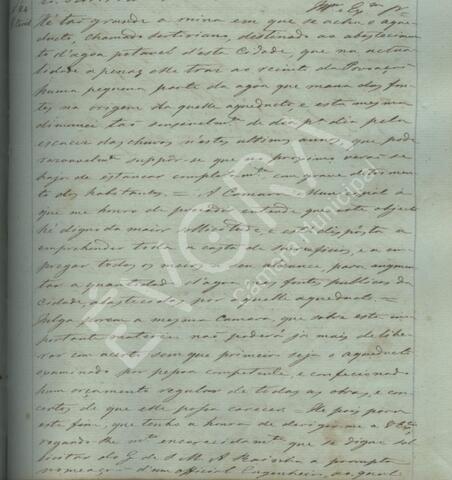 Illmo e Exmo Sr
Hé tão grande a ruina em que se acha o aque-
ducto, chamado Sertoriano, destinado ao abastecimen-
to d'agoa potavel d'esta Cidade, que na actua-
lidade apenas elle traz ao recinto da Povoação
huma pequena parte da agoa que mana das fon-
tes na origem daquelle aqueducto, e esta mesma
diminue tão sensivelmte de dia pa dia pela
escacez das chuvas n'estes ultimos annos, que pode
razoavelmte suppor-se que no proximo verão se
haja de estancar completamte com grave detrimen-
to dos habitantes. = A Camara Municipal a
que me honro de presidir, entende que este objecto
hé digno da maior sollicitude, e está disposta a
emprehender toda a casta de sacrificios, e a em-
pregar todos os meios a seu alcance, para augmen-
tar a quantidade d'agoa nas fontes publicas da
Cidade, abastecidas por aquelle aqueducto. =
Julga porem a mesma Camara, que sobre esta im-
portante materia não poderá já mais delibe-
rar com acerto, sem que primeiro seja o aqueducto
examinado por pessoa competente, e confeccionado
hum orçamento regular de todas as obras, e con-
certos, de que elle possa carecer. = He pois para
este fim, que tenho a honra de dirigir-me a V. Exa
rogando-lhe mto encarecidamte que se digne sol-
licitar do G. de S. M. A Rainha a prompta
nomeação d'um official Engenheiro, ao qual
EVORA
Câmara Municipal